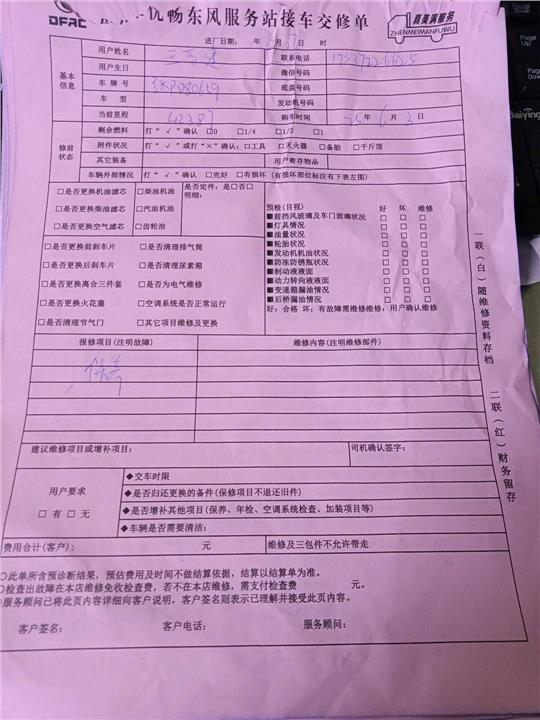 DFAC 优畅东风服务站接车交修单 真美满服务
ZHENMEIMANFUWU
进厂日期： 年 月 日 时
基本信息
用户姓名 联系电话
用户生日 微信号码
车 牌 号 底盘号码
车 型 发动机号码
当前里程 购车时间 25年6月3日
修前状态
剩余燃料 打“√”确认 □0 □1/4 □1/2 □1
附件状况 打“√”或打“×”确认：□工具 □灭火器 □备胎 □千斤顶
其它装备 用户寄存物品
车辆外部情况 打“√”确认 □完好 □有损坏（有损坏部位标注有下表左图）
□是否更换机油滤芯 □柴油机油 是否定件：是□否□
明细：
□是否更换柴油滤芯 □汽油机油
□是否更换空气滤芯 □齿轮油
□是否更换前刹车片 □是否清理排气筒
□是否更换后刹车片 □是否清理尿素箱
□是否更换离合三件套 □是否为电气维修
□是否更换火花塞 □空调系统是否正常运行
□是否清理节气门 □其它项目维修及更换
预检(目视) 好 坏 维修
■前挡风玻璃及车门玻璃状况 □ □ □
■灯具情况 □ □ □
■油量状况 □ □ □
■轮胎状况 □ □ □
■发动机机油状况 □ □ □
■防冻防锈瓶状况 □ □ □
■制动液液面 □ □ □
■动力转向液液面 □ □ □
■变速箱漏油情况 □ □ □
■后桥漏油情况 □ □ □
好：合格 坏：有故障需维修维修：用户确认维修
报修项目(注明故障) 维修内容(注明维修部件)
保养
建议维修项目或增补项目： 司机确认签字：
用户要求
□ 有 □ 无
◆交车时限
◆是否归还更换的备件(保修项目不退还旧件)
◆是否增补其他项目(保养、年检、空调系统检查、加装项目等)
◆车辆是否需要清洁：
费用合计(客户)： 元 维修及三包件不允许带走
○此单所含预诊断结果，预估费用及时间不做结算依据，结算以结算单为准。
○检查出故障在本店维修免收检查费，若不在本店维修，需支付检查费 元。
○服务顾问已将此页内容详细向客户说明，客户签名则表示已理解并接受此页内容。
客户签名： 客户电话： 服务顾问：
一联（白）随维修资料存档
二联（红）财务留存
Page Up
Page